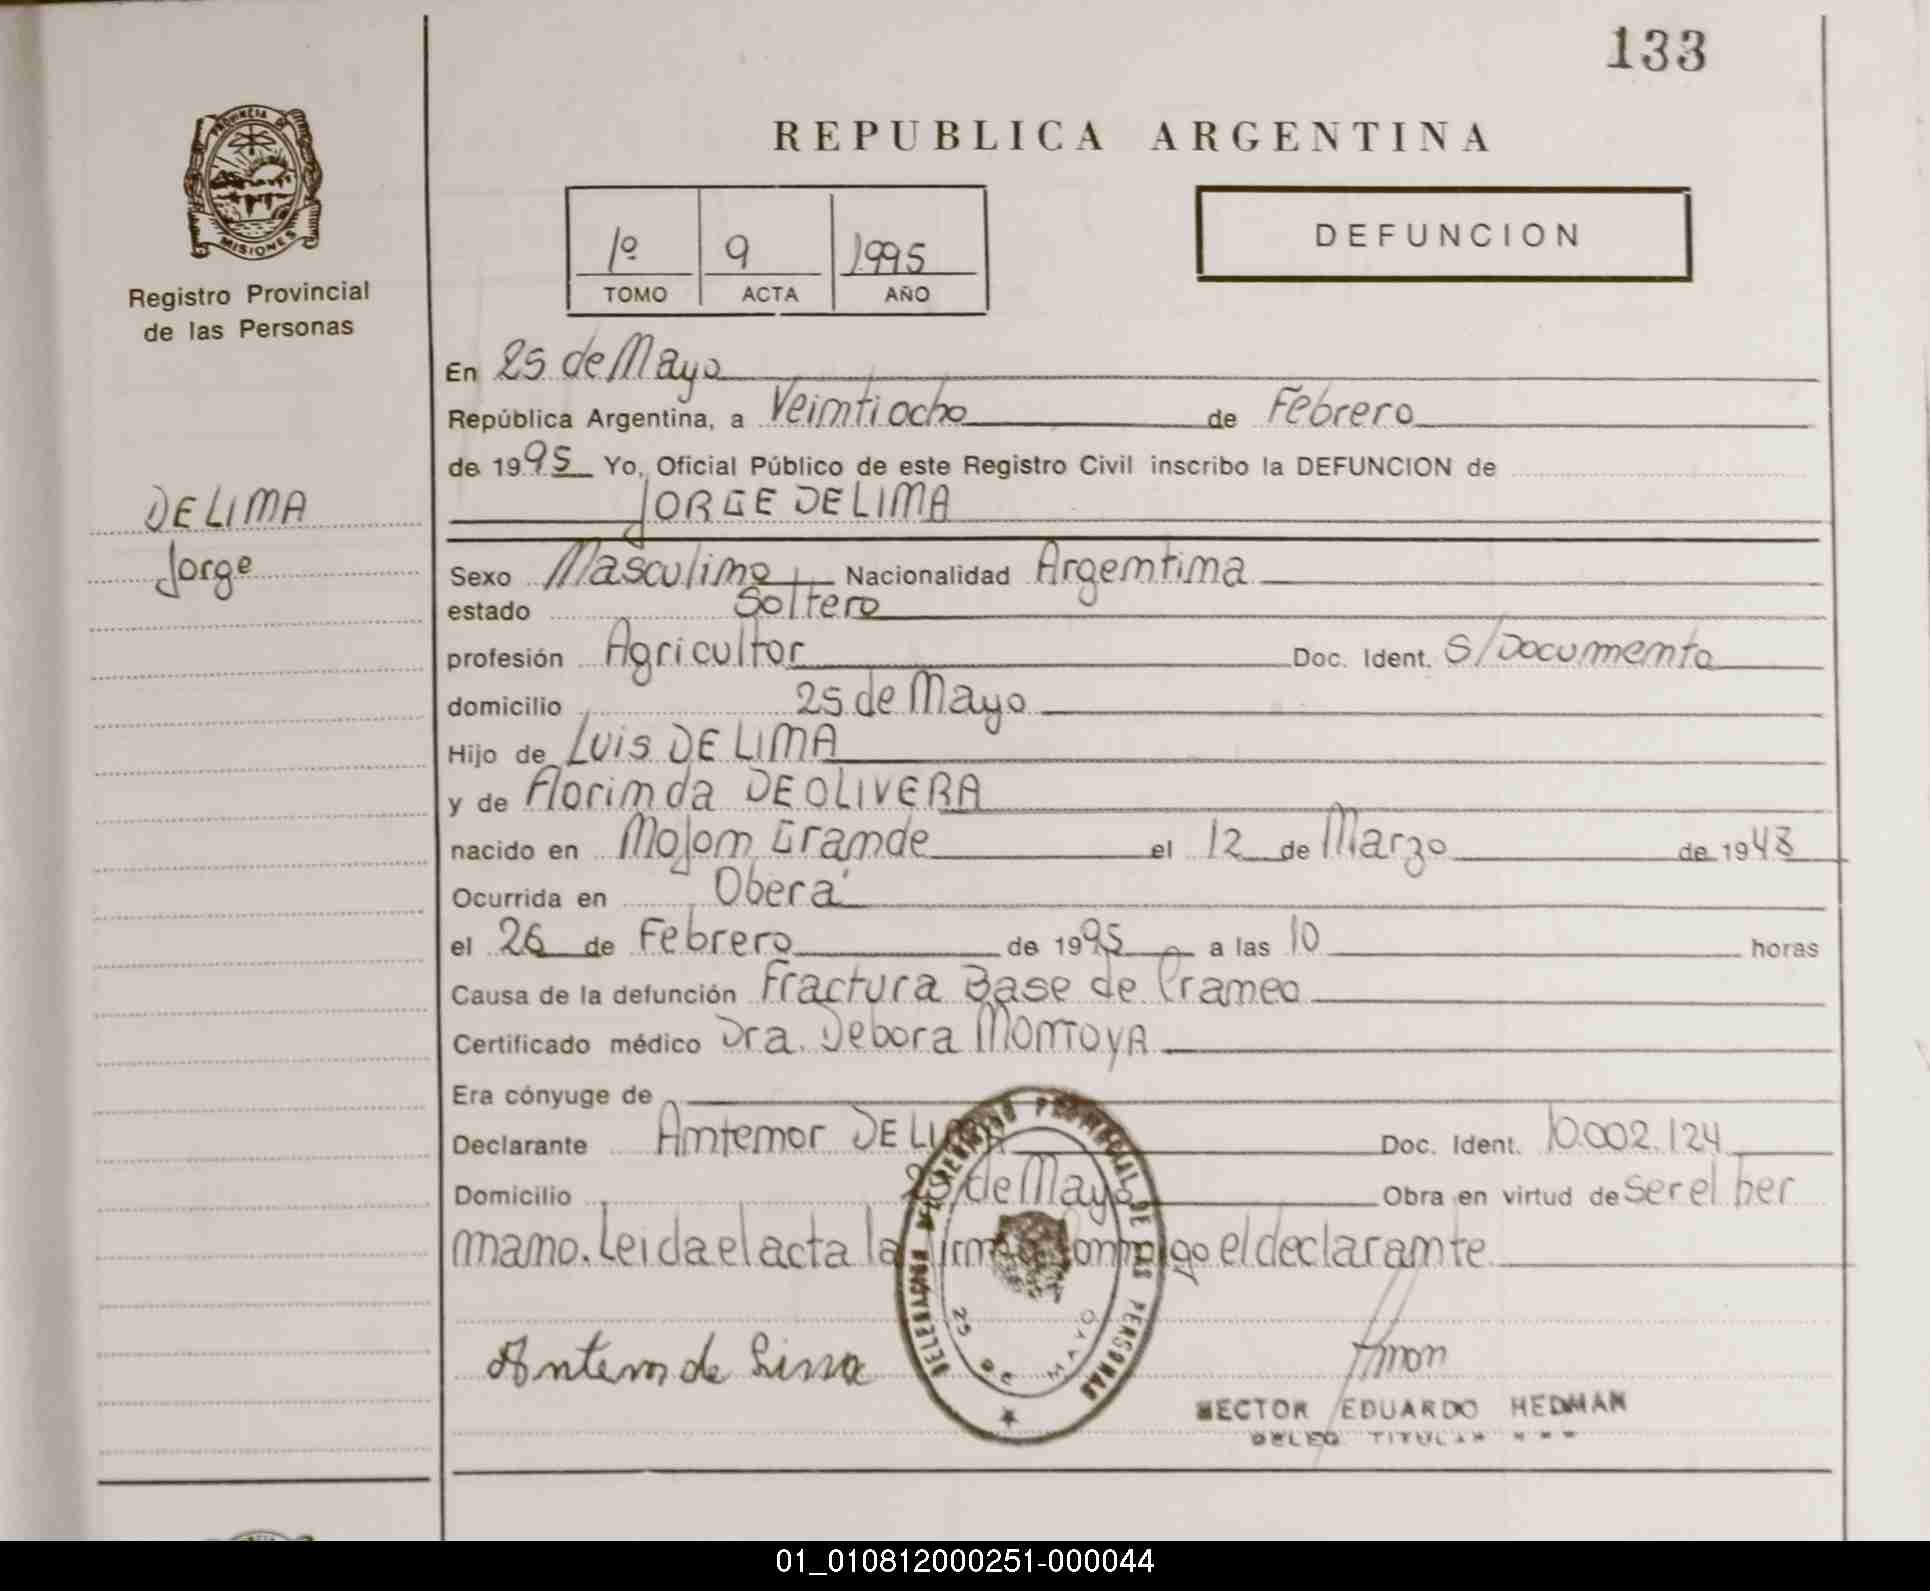 133
REPUBLICA ARGENTINA
PROVINCIA DE
MISIONES
Registro Provincial
de las Personas
1º 9 1995
TOMO ACTA AÑO
DEFUNCION
DE LIMA
Jorge
En 25 de Mayo
República Argentina, a Veintiocho de Febrero
de 1995 Yo, Oficial Público de este Registro Civil inscribo la DEFUNCION de
JORGE DE LIMA
Sexo Masculino Nacionalidad Argentina
estado Soltero
profesión Agricultor Doc. Ident. S/Documento
domicilio 25 de Mayo
Hijo de Luis DE LIMA
y de Florinda DE OLIVERA
nacido en Mojon Grande el 12 de Marzo de 1948
Ocurrida en Oberá
el 26 de Febrero de 1995 a las 10 horas
Causa de la defunción Fractura Base de Craneo
Certificado médico Dra. Debora MONTOYA
Era cónyuge de
Declarante Antenor DE LIMA Doc. Ident. 10.002.124
Domicilio 25 de Mayo Obra en virtud de ser el her
mano. Leida el acta la firma conmigo el declarante
PROVINCIAL DE LAS PERSONAS
25 DE MAYO
Antenor de Lima
HECTOR EDUARDO HEDMAN
DELEG. TITULAR
01_010812000251-000044